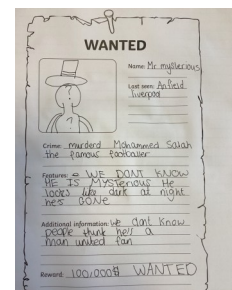 WANTED
Name: Mr mysterious
Last seen: Anfield
liverpool
Crime: murderd Mohammed Salah
the famous footballer
Features: WE DONT KNOW
HE IS MYSTerious He
looks like dark at night
he's GONE
Additional information: we dont know
people think he's a
man united fan
Reward: 100,000$ WANTED